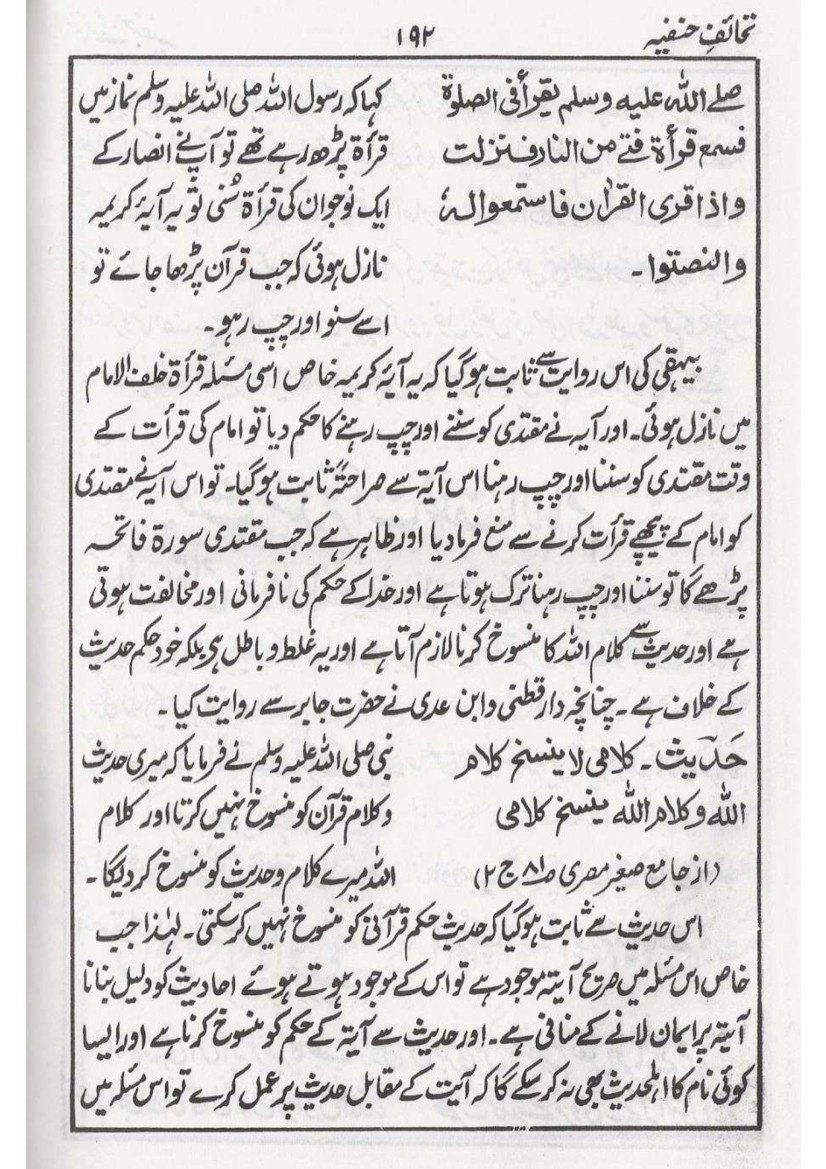 تحائفِ حنفیہ
۱۹۲
صلے اللہ علیہ وسلم یقرأ فی الصلوٰۃ
فسمع قرأۃ فتے من النار فنزلت
واذا قری القراٰن فاستمعوا لہٗ
والنصتوا۔
کہا کہ رسول اللہ صلی اللہ علیہ وسلم نماز میں
قرأۃ پڑھ رہے تھے تو آپ نے انصار کے
ایک نوجوان کی قرأۃ سُنی تو یہ آیۂ کریمہ
نازل ہوئی کہ جب قرآن پڑھا جائے تو
اسے سنو اور چپ رہو۔
بیہقی کی اس روایت سے ثابت ہوگیا کہ یہ آیۂ کریمہ خاص اسی مسئلہ قرأۃ خلف الامام
میں نازل ہوئی۔ اور آیہ نے مقتدی کو سننے اور چپ رہنے کا حکم دیا تو امام کی قرأت کے
وقت مقتدی کو سننا اور چپ رہنا اس آیۃ سے صراحتہً ثابت ہوگیا۔ تو اس آیہ نے مقتدی
کو امام کے پیچھے قرأت کرنے سے منع فرمادیا اور ظاہر ہے کہ جب مقتدی سورۃ فاتحہ
پڑھے گا تو سننا اور چپ رہنا ترک ہوتا ہے اور خدا کے حکم کی نافرمانی اور مخالفت ہوتی
ہے اور حدیث سے کلام اللہ کا منسوخ کرنا لازم آتا ہے اور یہ غلط و باطل ہی بلکہ خود حکم حدیث
کے خلاف ہے۔ چنانچہ دارقطنی و ابن عدی نے حضرت جابر سے روایت کیا۔
حدیث۔ کلامی لا ینسخ کلام
اللہ وکلام اللہ ینسخ کلامی
(از جامع صغیر مصری ص۸۱ ج ۲)
نبی صلی اللہ علیہ وسلم نے فرمایا کہ میری حدیث
وکلام قرآن کو منسوخ نہیں کرتا اور کلام
اللہ میرے کلام وحدیث کو منسوخ کر دیگا۔
اس حدیث سے ثابت ہوگیا کہ حدیث حکم قرآنی کو منسوخ نہیں کر سکتی۔ لہٰذا جب
خاص اس مسئلہ میں صریح آیتہ موجود ہے تو اس کے موجود ہوتے ہوئے احادیث کو دلیل بنانا
آیتہ پر ایمان لانے کے منافی ہے۔ اور حدیث سے آیۃ کے حکم کو منسوخ کرنا ہے اور ایسا
کوئی نام کا اہلحدیث بھی نہ کر سکے گا کہ آیت کے مقابل حدیث پر عمل کرے تو اس مسئلہ میں